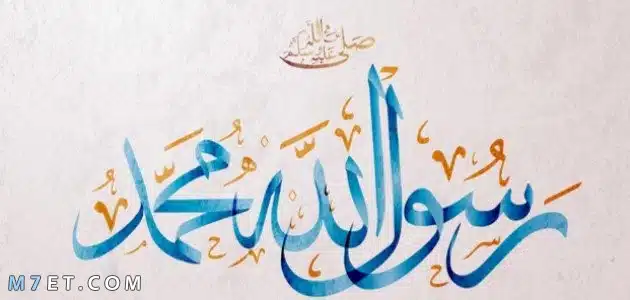 صلى الله عليه وسلم
رسول الله محمد
M7ET.COM